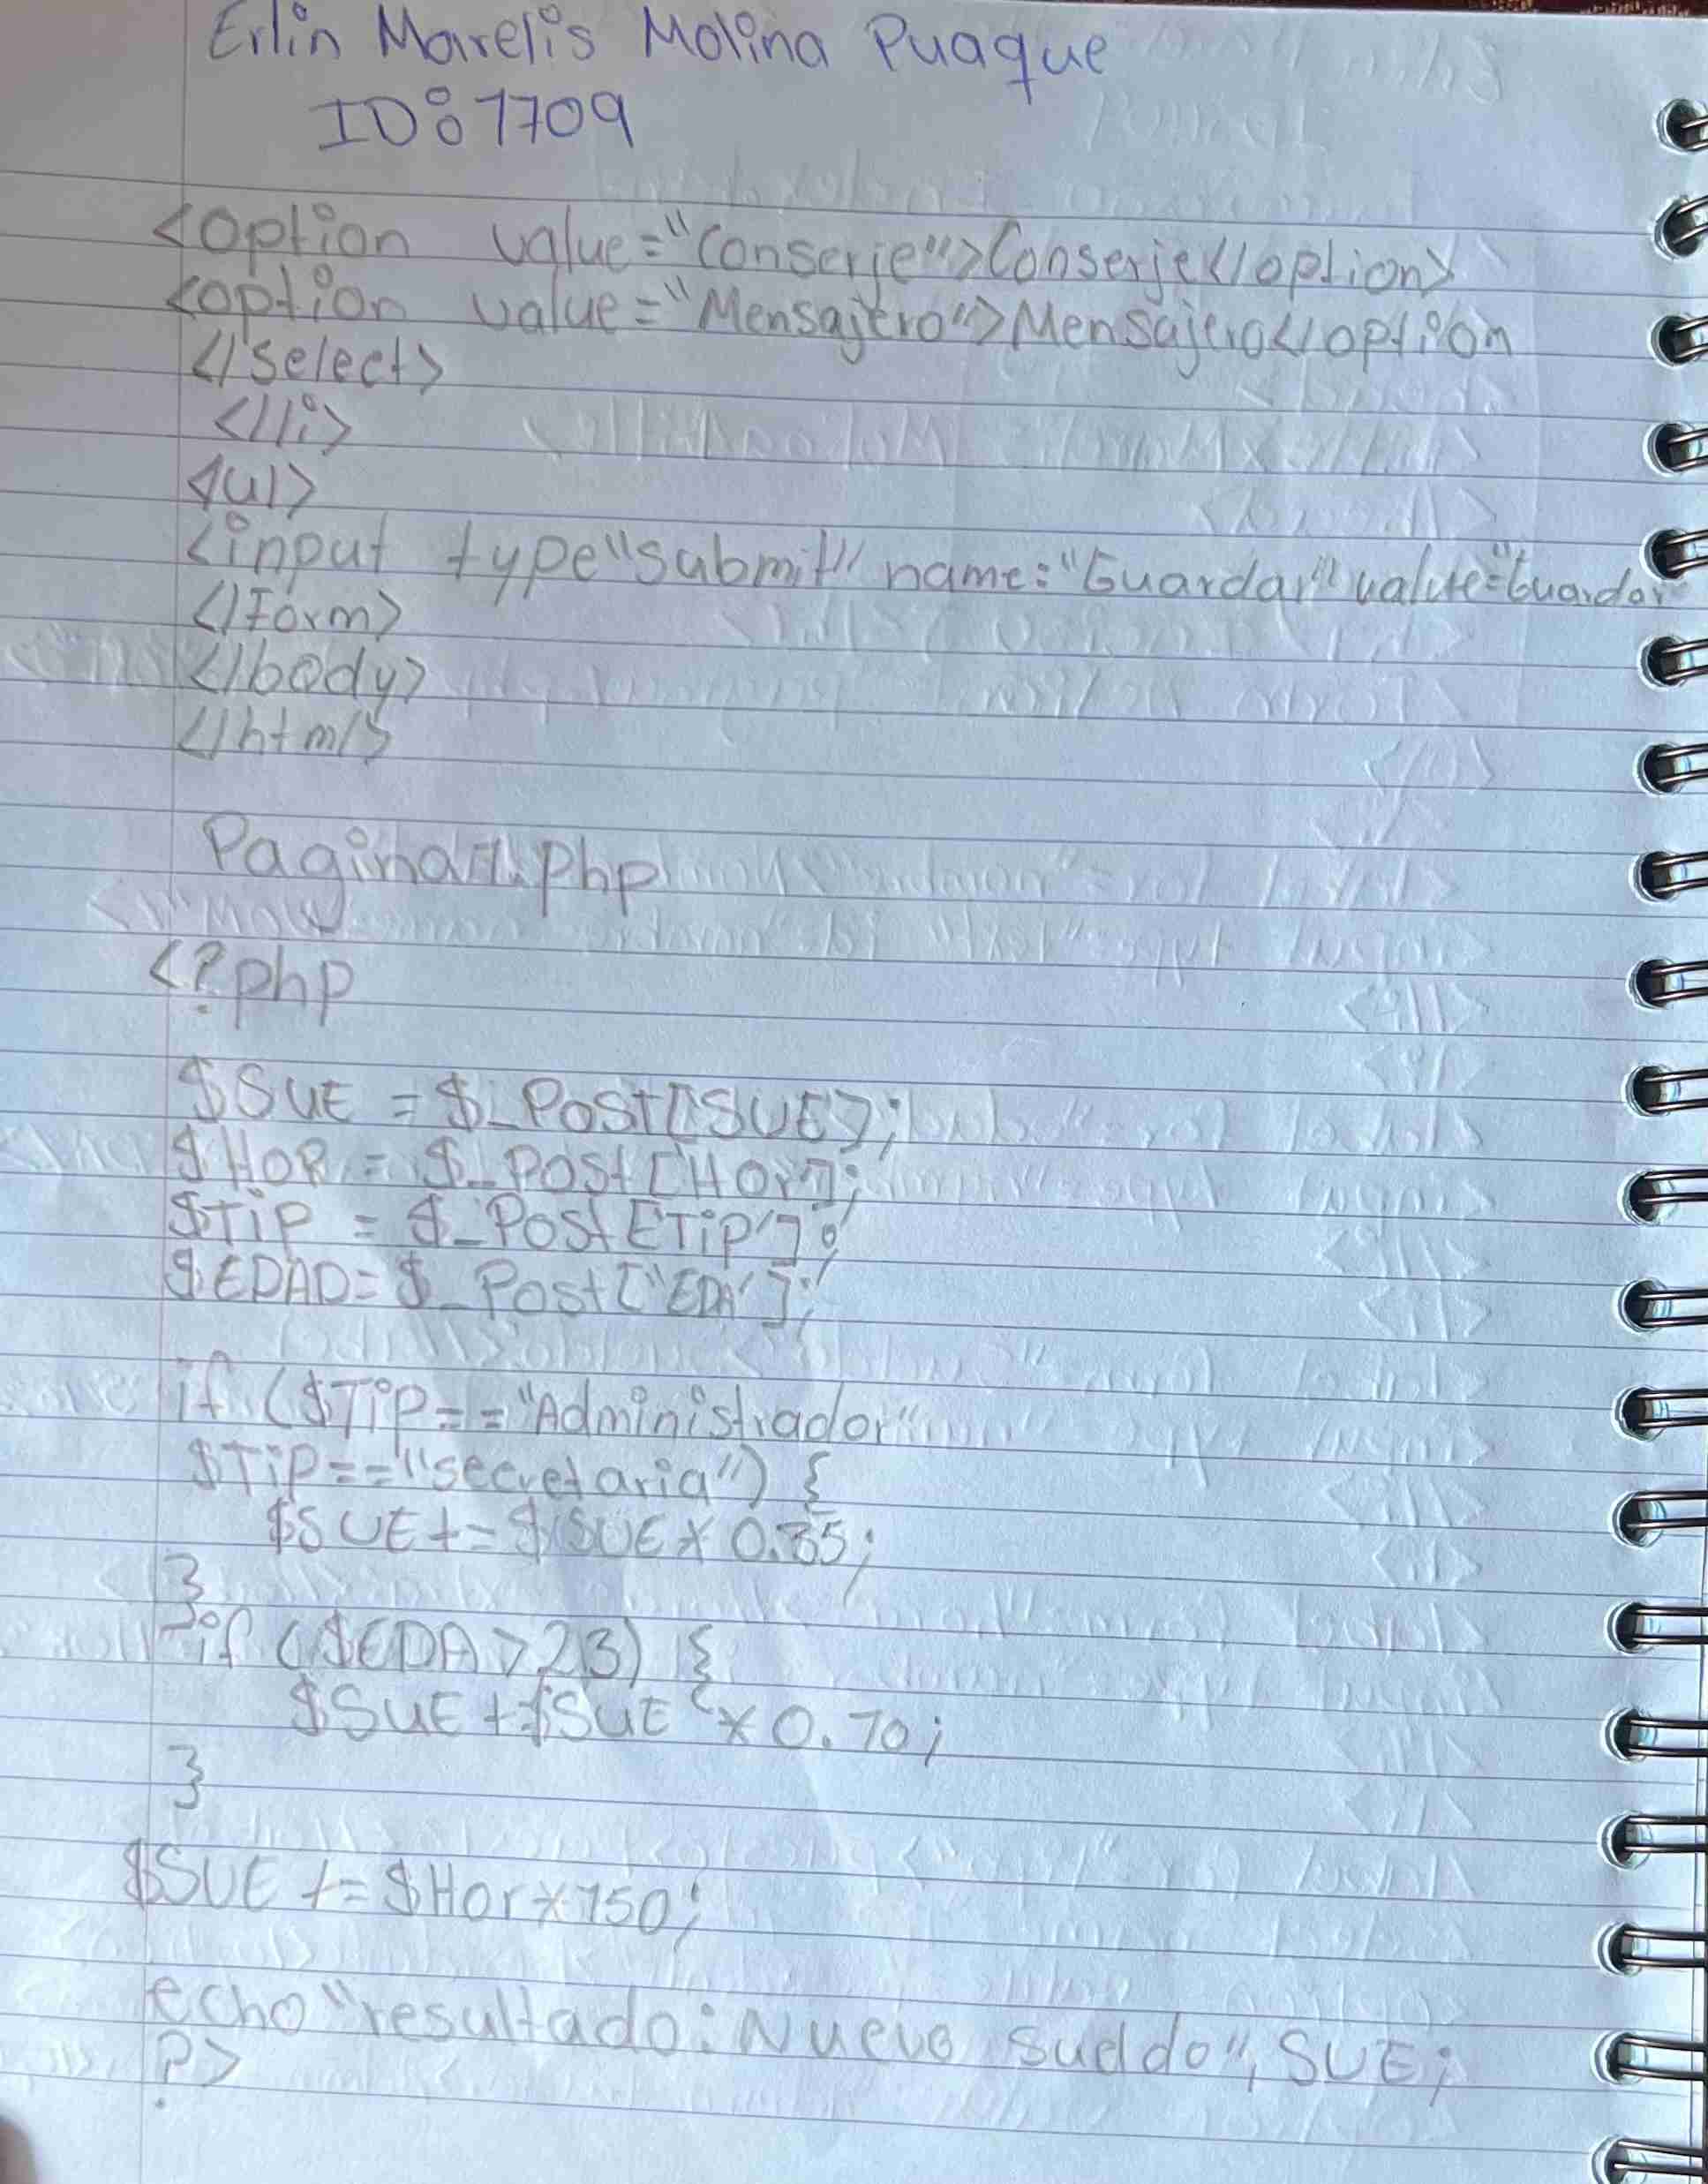 Erlin Marelis Molina Puaque
ID: 1709
<option value="Conserje">Conserje<//option>
<option value="Mensajero">Mensajero<//option
<//select>
<//li>
</ul>
<input type"submit" name="Guardar" value="Guardar
<//Form>
<//body>
<//html>
Pagina1.php
<?php
$SUE = $_Post['SUE'];
$HOR = $_Post['Hor'];
$TiP = $_Post['TiP'];
$EDAD= $_Post["EDA'];
if ($TiP=="Administrador"
$TiP=="secretaria") {
$SUE+=$SUE*0.35;
}
}if ($EDA>23) {
$SUE+$SUE *0.70;
}
$SUE+=$Hor*150;
echo"resultado: Nuevo sueldo", SUE;
?>